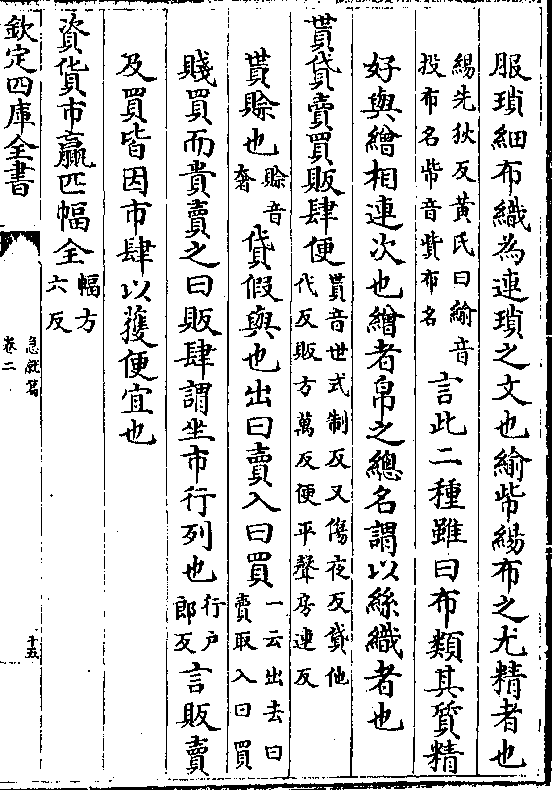 服瑣細布織為連瑣之文也緰帋緆布之尤精者也
緆先狄反黃氏曰緰音
投布名帋音貲布名
言此二種雖曰布類其質精
好與繒相連次也繒者帛之總名謂以絲織者也
貰貸賣買販肆便
貰音世式制反又傷夜反貸他
代反販方萬反便平聲房連反
貰賒也
賒音
奢
貸假與也出曰賣入曰買
一云出去曰
賣取入曰買
賤買而貴賣之曰販肆謂坐市行列也
行戶
郎反
言販賣
及買皆因市肆以獲便宜也
資貨市贏匹幅全
幅方
六反
欽定四庫全書
急就篇
卷二
十五